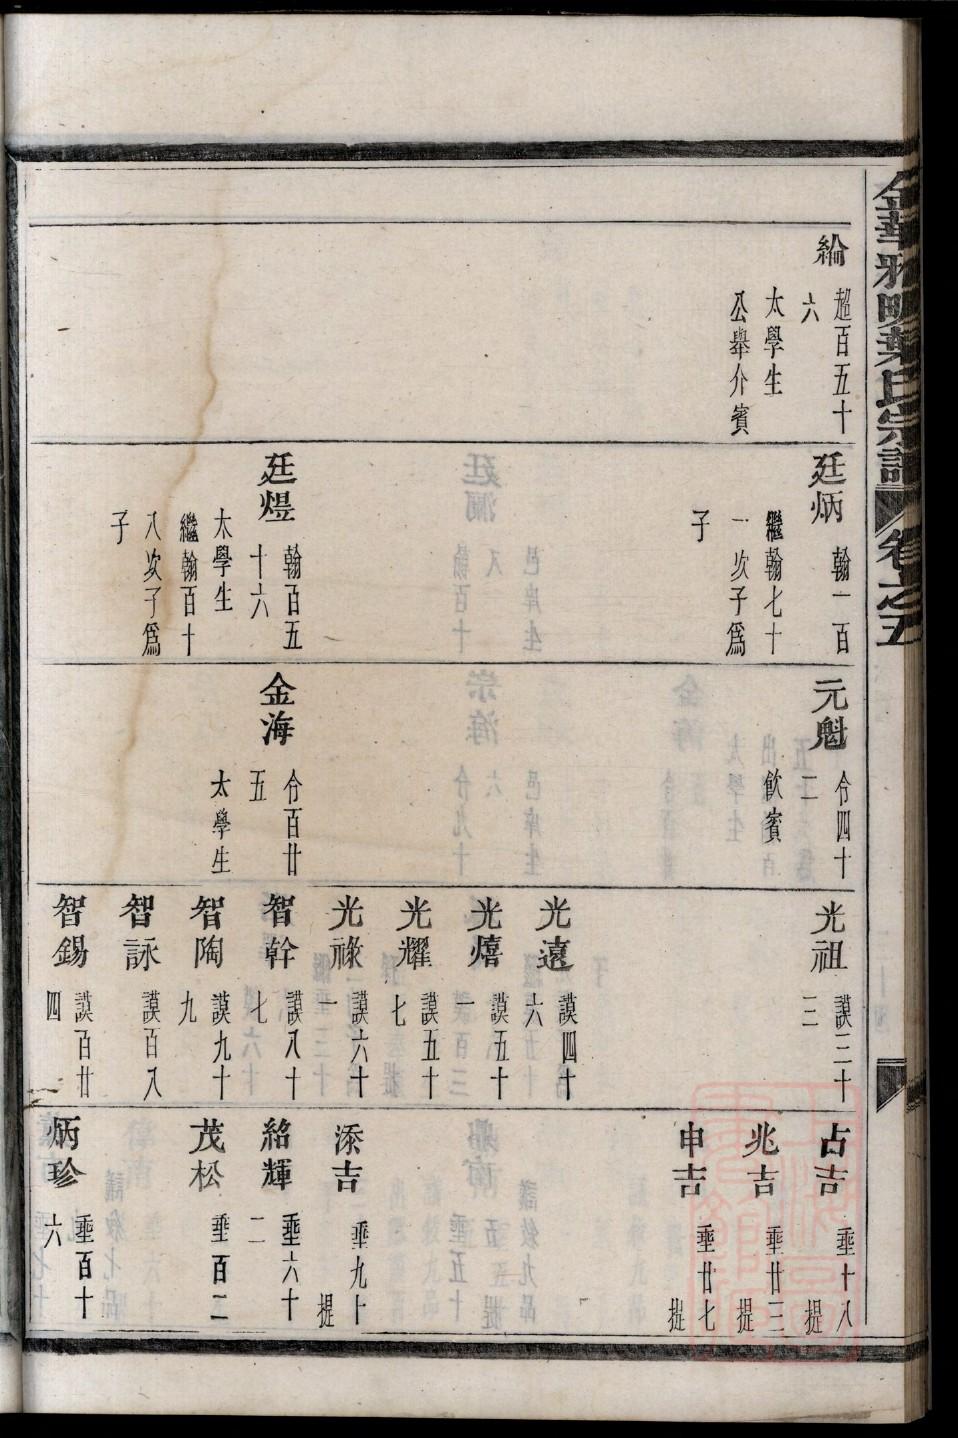 金華雅畈葉氏宗譜
卷之五
綸
超百五十
六
太學生
公舉介賓
廷炳
翰一百
繼翰七十
一次子爲
子
廷煜
翰百五
十六
太學生
繼翰百十
八次子爲
子
元魁
令四十
二
飲賓
金海
令百廿
五
太學生
光祖
謨三十
三
光遠
謨四十
六
光熺
謨五十
一
光耀
謨五十
七
光祿
謨六十
一
智幹
謨八十
七
智陶
謨九十
九
智詠
謨百八
智錫
謨百廿
四
占吉
垂十八
提
兆吉
垂廿三
提
申吉
垂廿七
提
添吉
垂九十
提
紹輝
垂六十
二
茂松
垂百二
炳珍
垂百十
六